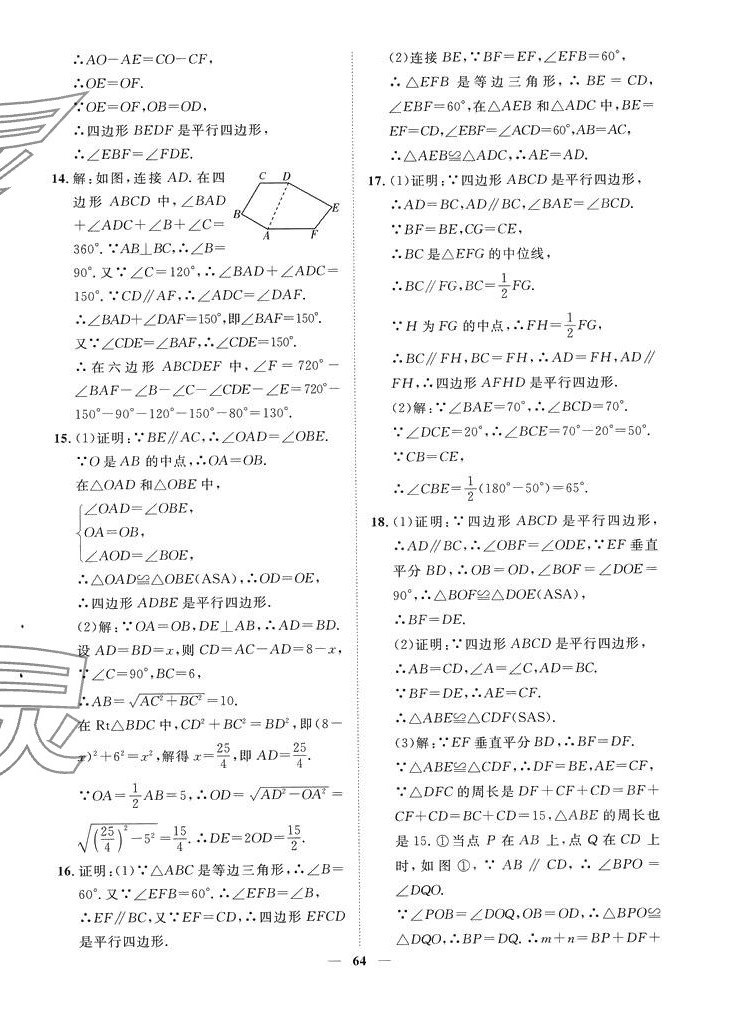 ∴AO－AE＝CO－CF，
∴OE＝OF．
∵OE＝OF，OB＝OD，
∴四边形 BEDF 是平行四边形，
∴∠EBF＝∠FDE．
14. 解：如图，连接 AD．在四
边形 ABCD 中，∠BAD
＋∠ADC＋∠B＋∠C＝
360°．∵AB⊥BC，∴∠B＝
C D
B E
A F
90°．又∵∠C＝120°，∴∠BAD＋∠ADC＝
150°．∵CD∥AF，∴∠ADC＝∠DAF．
∴∠BAD＋∠DAF＝150°，即∠BAF＝150°．
又∵∠CDE＝∠BAF，∴∠CDE＝150°．
∴在六边形 ABCDEF 中，∠F＝720°－
∠BAF－∠B－∠C－∠CDE－∠E＝720°－
150°－90°－120°－150°－80°＝130°．
15. (1)证明：∵BE∥AC，∴∠OAD＝∠OBE．
∵O 是 AB 的中点，∴OA＝OB．
在△OAD 和△OBE 中，
{∠OAD＝∠OBE，
OA＝OB，
∠AOD＝∠BOE，
∴△OAD≌△OBE(ASA)，∴OD＝OE，
∴四边形 ADBE 是平行四边形．
(2)解：∵OA＝OB，DE⊥AB，∴AD＝BD．
设 AD＝BD＝x，则 CD＝AC－AD＝8－x，
∵∠C＝90°，BC＝6，
∴AB＝√(AC²＋BC²)＝10．
在 Rt△BDC 中，CD²＋BC²＝BD²，即(8－
x)²＋6²＝x²，解得 x＝25/4，即 AD＝25/4．
∵OA＝1/2 AB＝5，∴OD＝√(AD²－OA²)＝
√((25/4)²－5²)＝15/4．∴DE＝2OD＝15/2．
16. 证明：(1)∵△ABC 是等边三角形，∴∠B＝
60°．又∵∠EFB＝60°．∴∠EFB＝∠B，
∴EF∥BC，又∵EF＝CD，∴四边形 EFCD
是平行四边形．
(2)连接 BE，∵BF＝EF，∠EFB＝60°，
∴△EFB 是等边三角形，∴BE＝CD，
∠EBF＝60°，在△AEB 和△ADC 中，BE＝
EF＝CD，∠EBF＝∠ACD＝60°，AB＝AC，
∴△AEB≌△ADC，∴AE＝AD．
17. (1)证明：∵四边形 ABCD 是平行四边形，
∴AD＝BC，AD∥BC，∠BAE＝∠BCD．
∵BF＝BE，CG＝CE，
∴BC 是△EFG 的中位线，
∴BC∥FG，BC＝1/2 FG．
∵H 为 FG 的中点，∴FH＝1/2 FG，
∴BC∥FH，BC＝FH，∴AD＝FH，AD∥
FH，∴四边形 AFHD 是平行四边形．
(2)解：∵∠BAE＝70°，∴∠BCD＝70°．
∵∠DCE＝20°，∴∠BCE＝70°－20°＝50°．
∵CB＝CE，
∴∠CBE＝1/2(180°－50°)＝65°．
18. (1)证明：∵四边形 ABCD 是平行四边形，
∴AD∥BC，∴∠OBF＝∠ODE，∵EF 垂直
平分 BD，∴OB＝OD，∠BOF＝∠DOE＝
90°，∴△BOF≌△DOE(ASA)，
∴BF＝DE．
(2)证明：∵四边形 ABCD 是平行四边形，
∴AB＝CD，∠A＝∠C，AD＝BC．
∵BF＝DE，∴AE＝CF．
∴△ABE≌△CDF(SAS)．
(3)解：∵EF 垂直平分 BD，∴BF＝DF．
∵△ABE≌△CDF，∴DF＝BE，AE＝CF，
∵△DFC 的周长是 DF＋CF＋CD＝BF＋
CF＋CD＝BC＋CD＝15，△ABE 的周长也
是 15．①当点 P 在 AB 上，点 Q 在 CD 上
时，如图①，∵AB∥CD，∴∠BPO＝
∠DQO．
∵∠POB＝∠DOQ，OB＝OD，∴△BPO≌
△DQO，∴BP＝DQ．∴m＋n＝BP＋DF＋
— 64 —